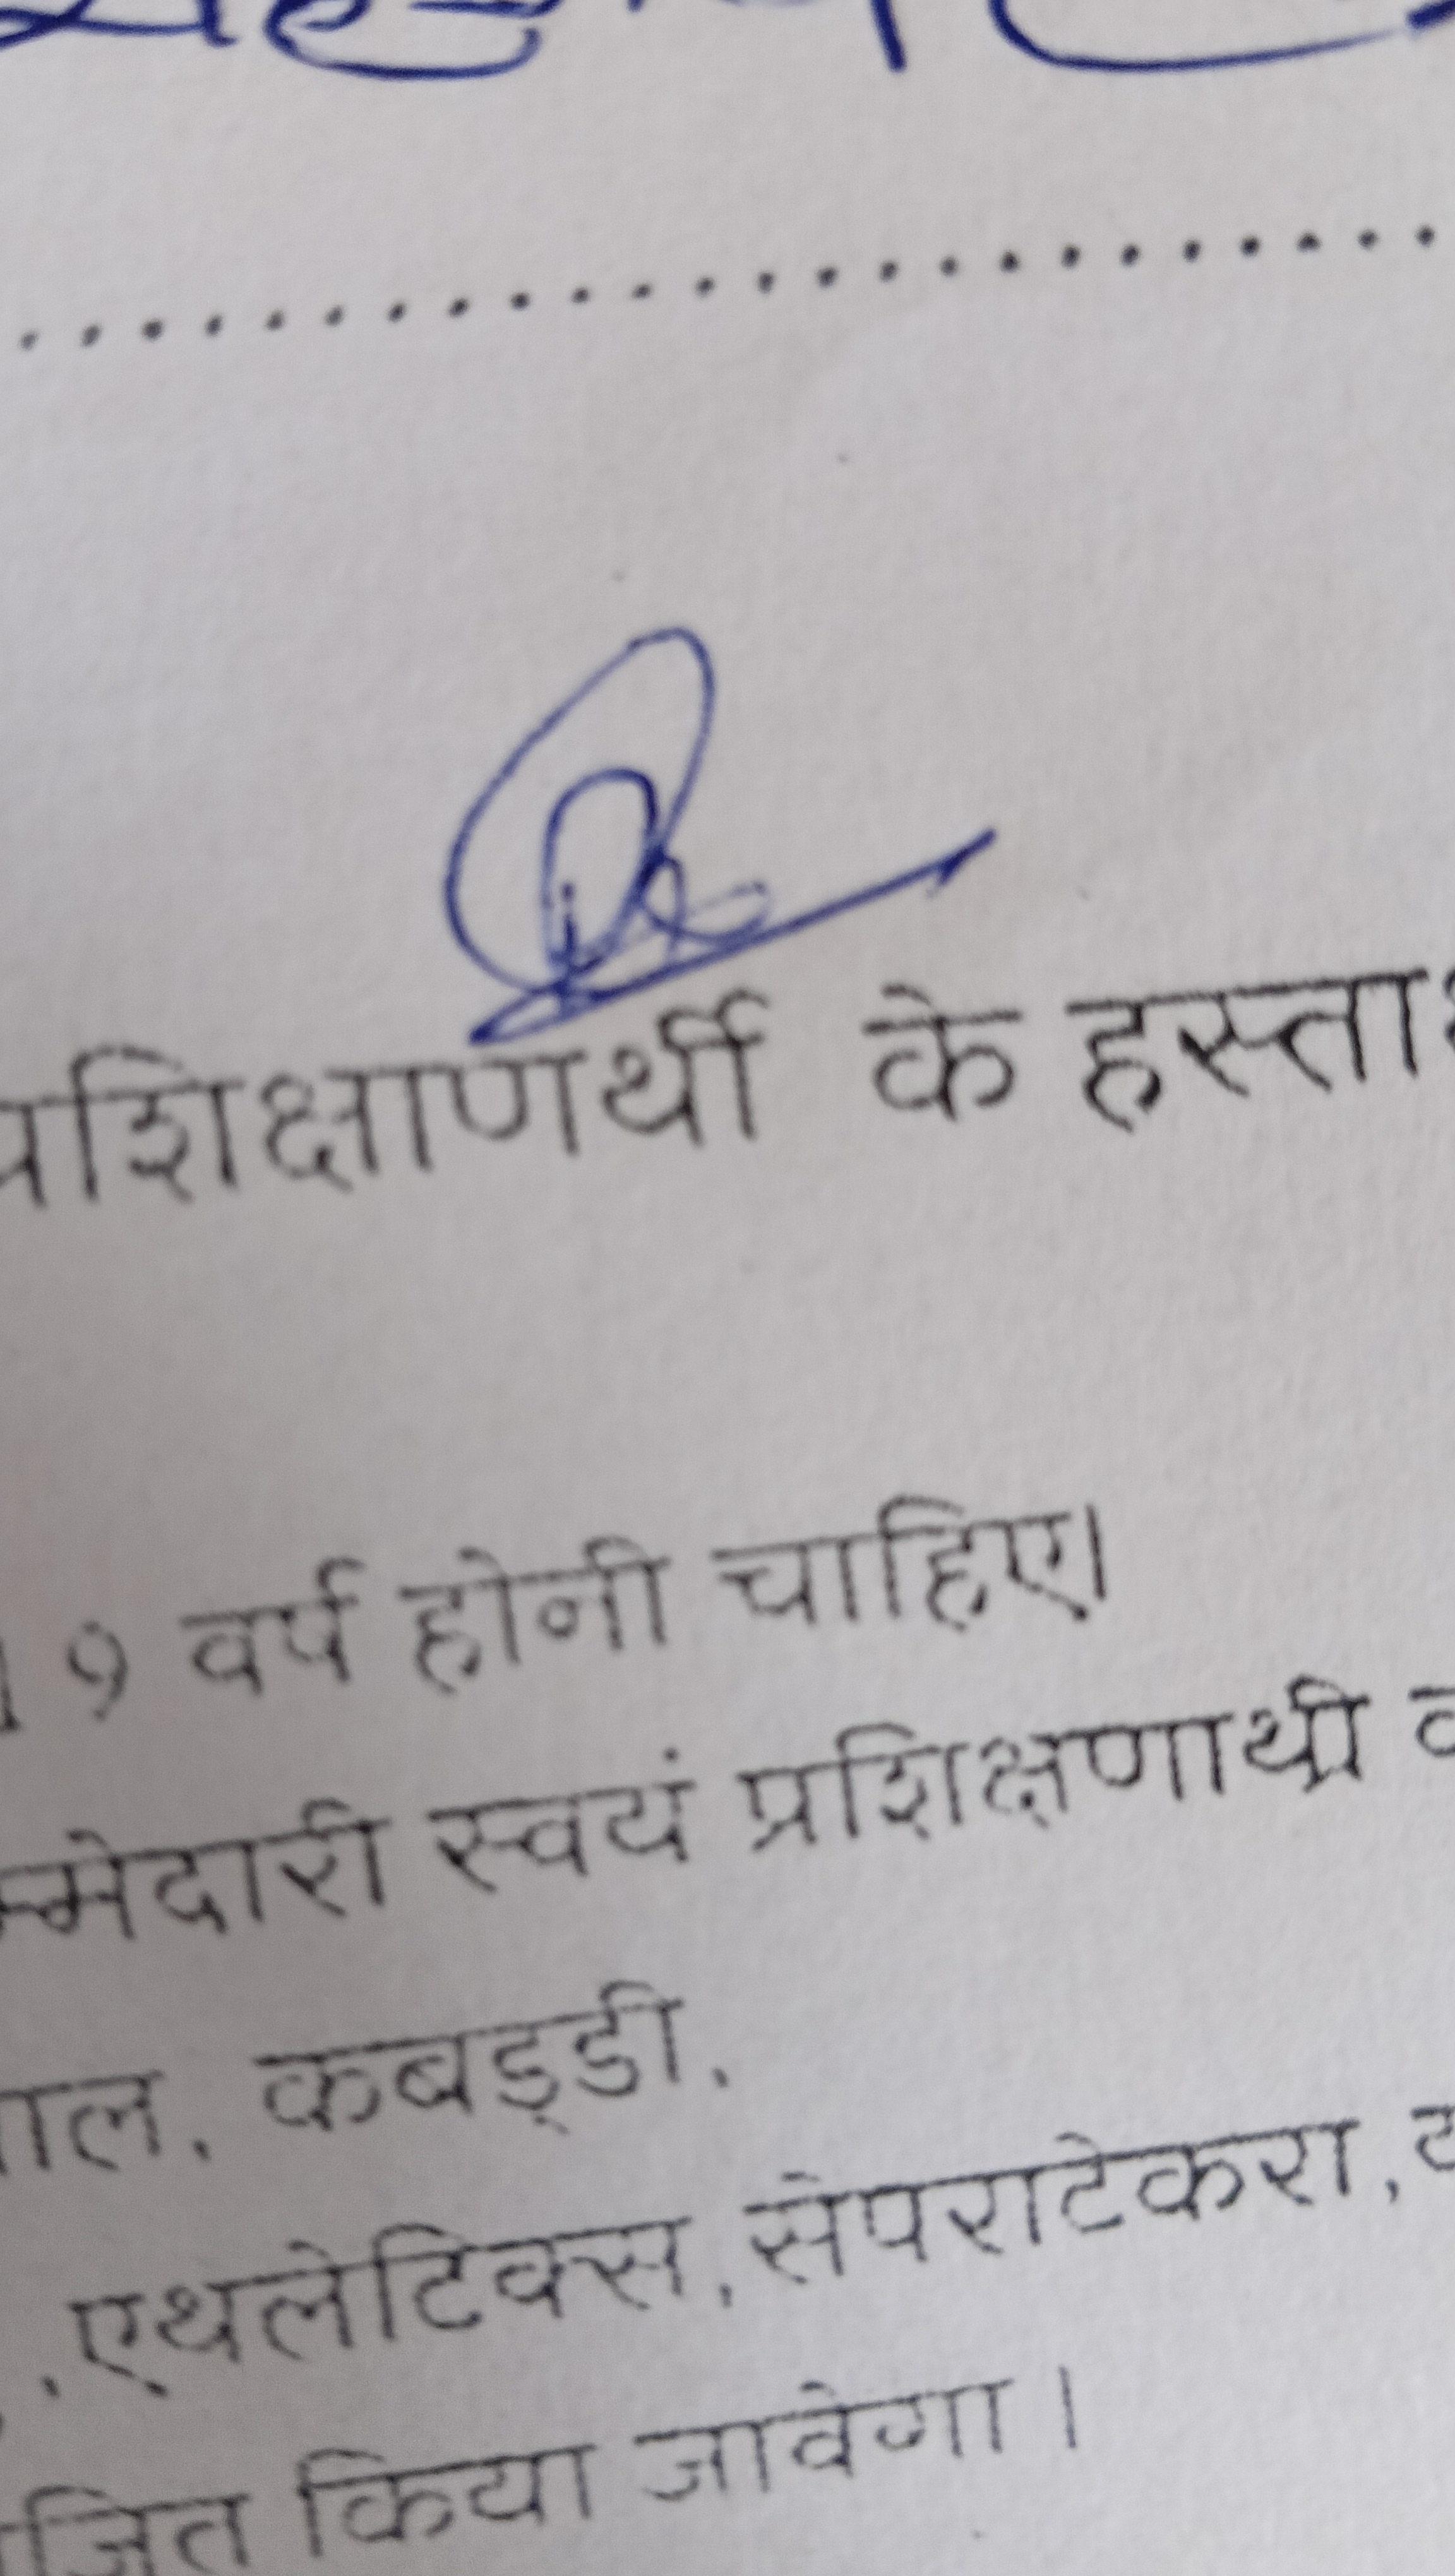 प्रशिक्षाणर्थी के हस्ता
19 वर्ष होनी चाहिए।
म्मेदारी स्वयं प्रशिक्षणार्थी
ाल, कबड्डी,
,एथलेटिक्स,सेपराटेकरा,
जित किया जावेगा।